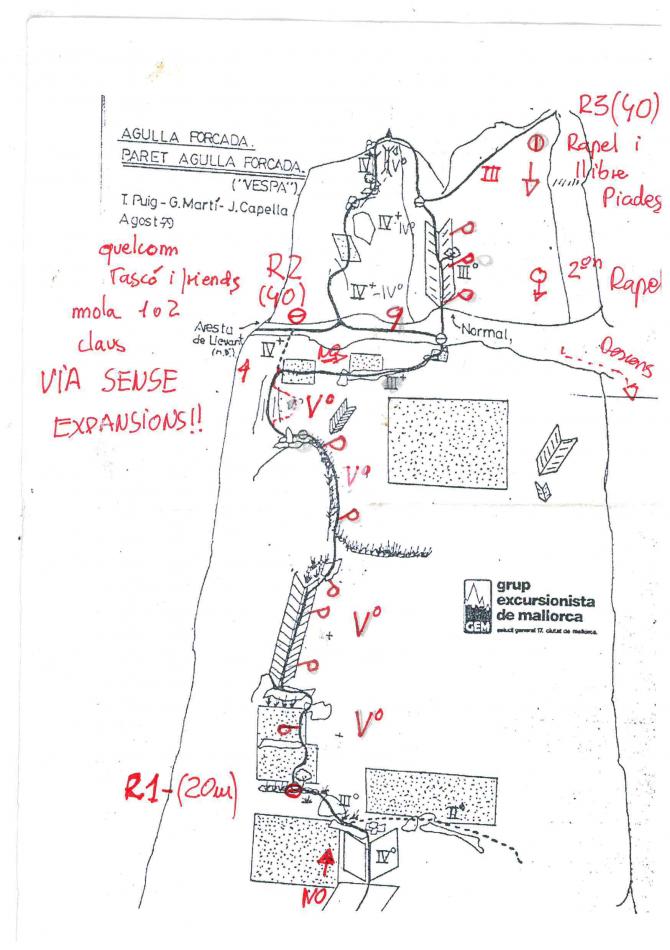 AGULLA FORCADA.
PARET AGULLA FORCADA.
("VESPA")
T. Puig - G. Martí - J. Capella
Agost-99
quelcom
Tascó i friends
mola 1o2
claus
VÍA SENSE
EXPANSIONS!!
R3(40)
Rapel i
llibre
Piades
III
2on
Rapel
R2
(40)
IV
V°
IV+
IV°
III°
IV+-IV°
9
Aresta
de Llevant
Normal,
IV+
4
NO
III+
Descens
V°
V°
grup
excursionista
de mallorca
GEM
V°
V°
R1-(20m)
III°
II°
IV°
NO